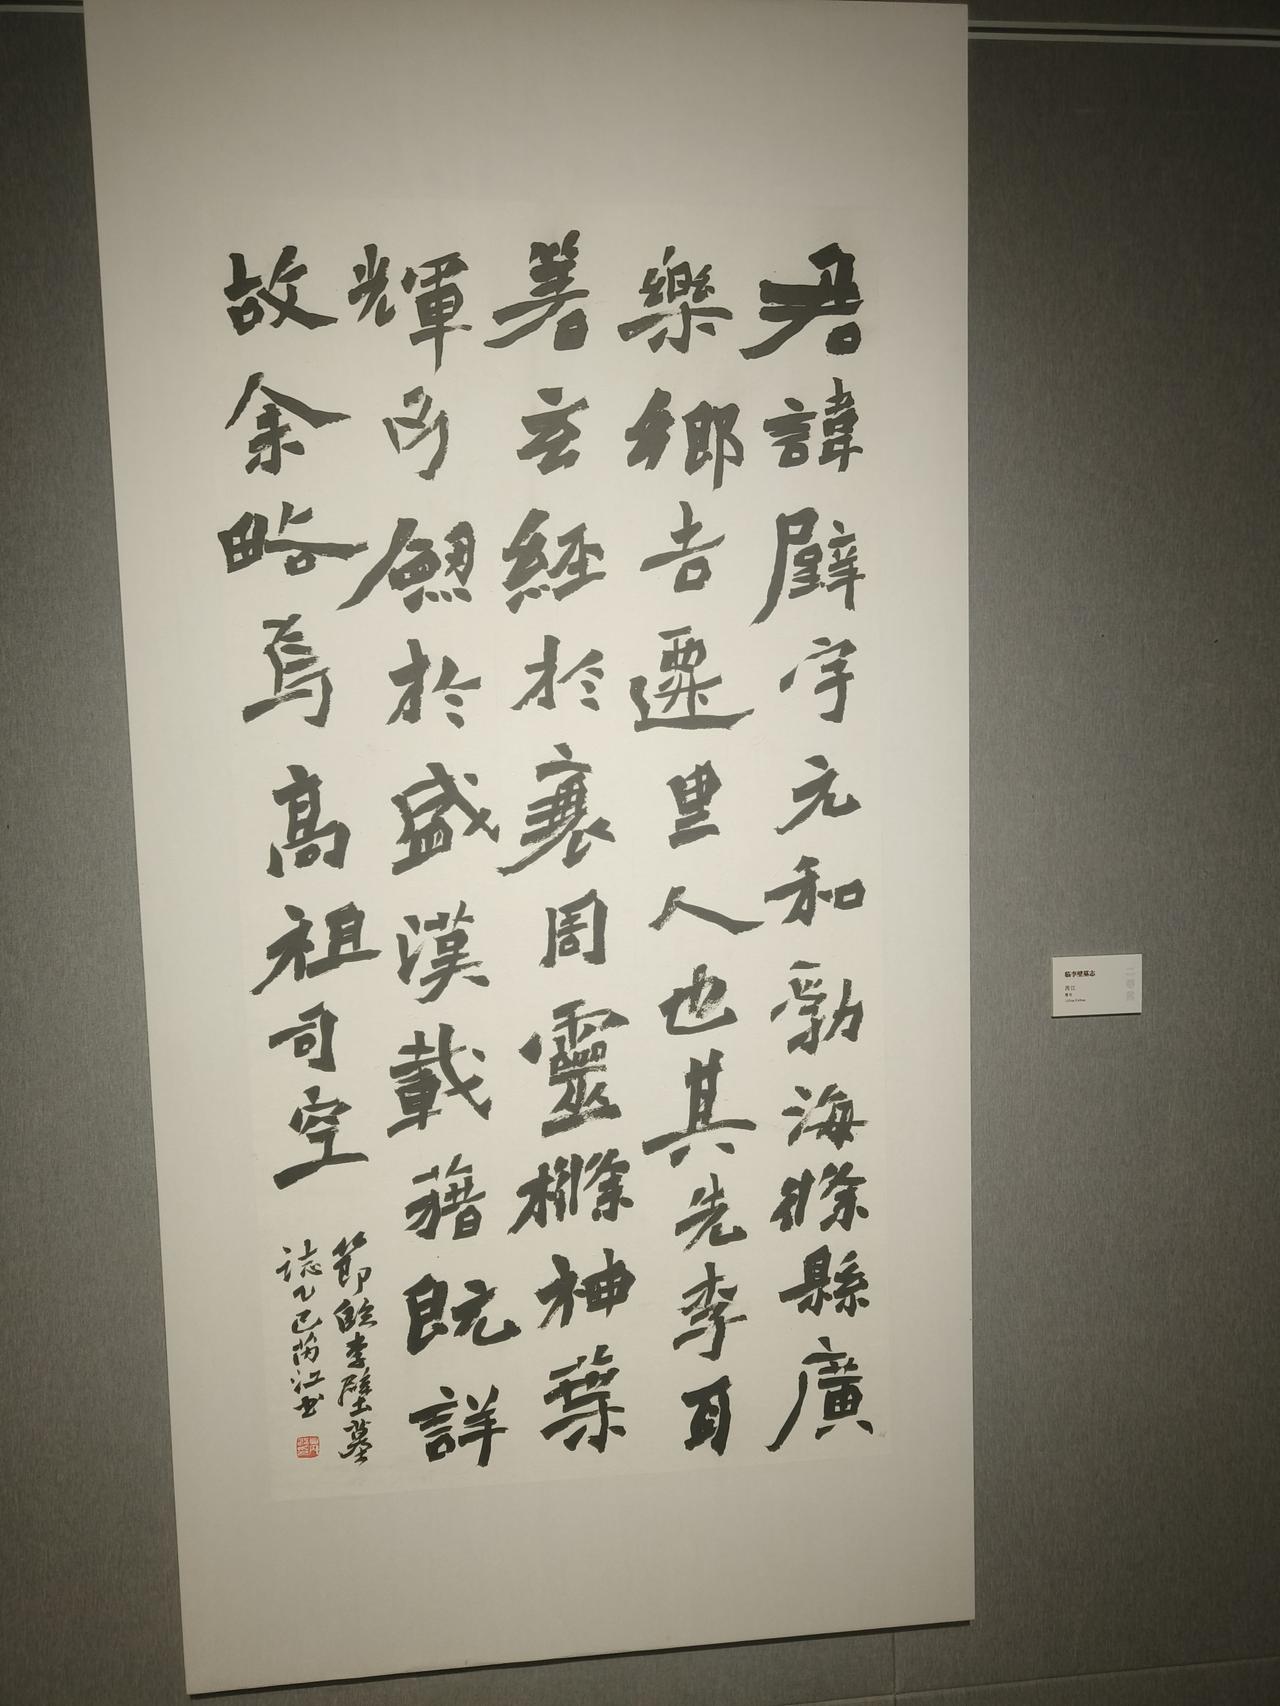 君諱璧字元和勃海條縣廣
樂鄉吉遷里人也其先李耳
著玄經於衰周靈樤神葉
輝於盛漢載藉既詳
故余略焉高祖司空
節臨李璧墓
誌乙巳芮江书
临李璧墓志
芮江